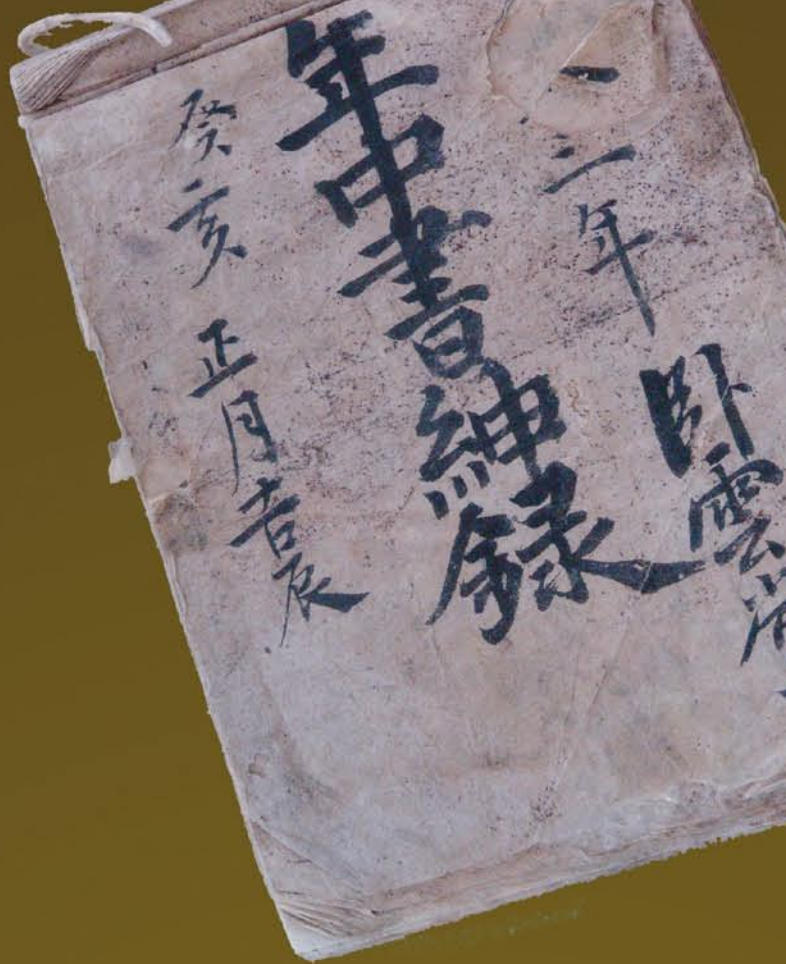 二年 臥雲
年中書紳録
癸亥 正月吉辰